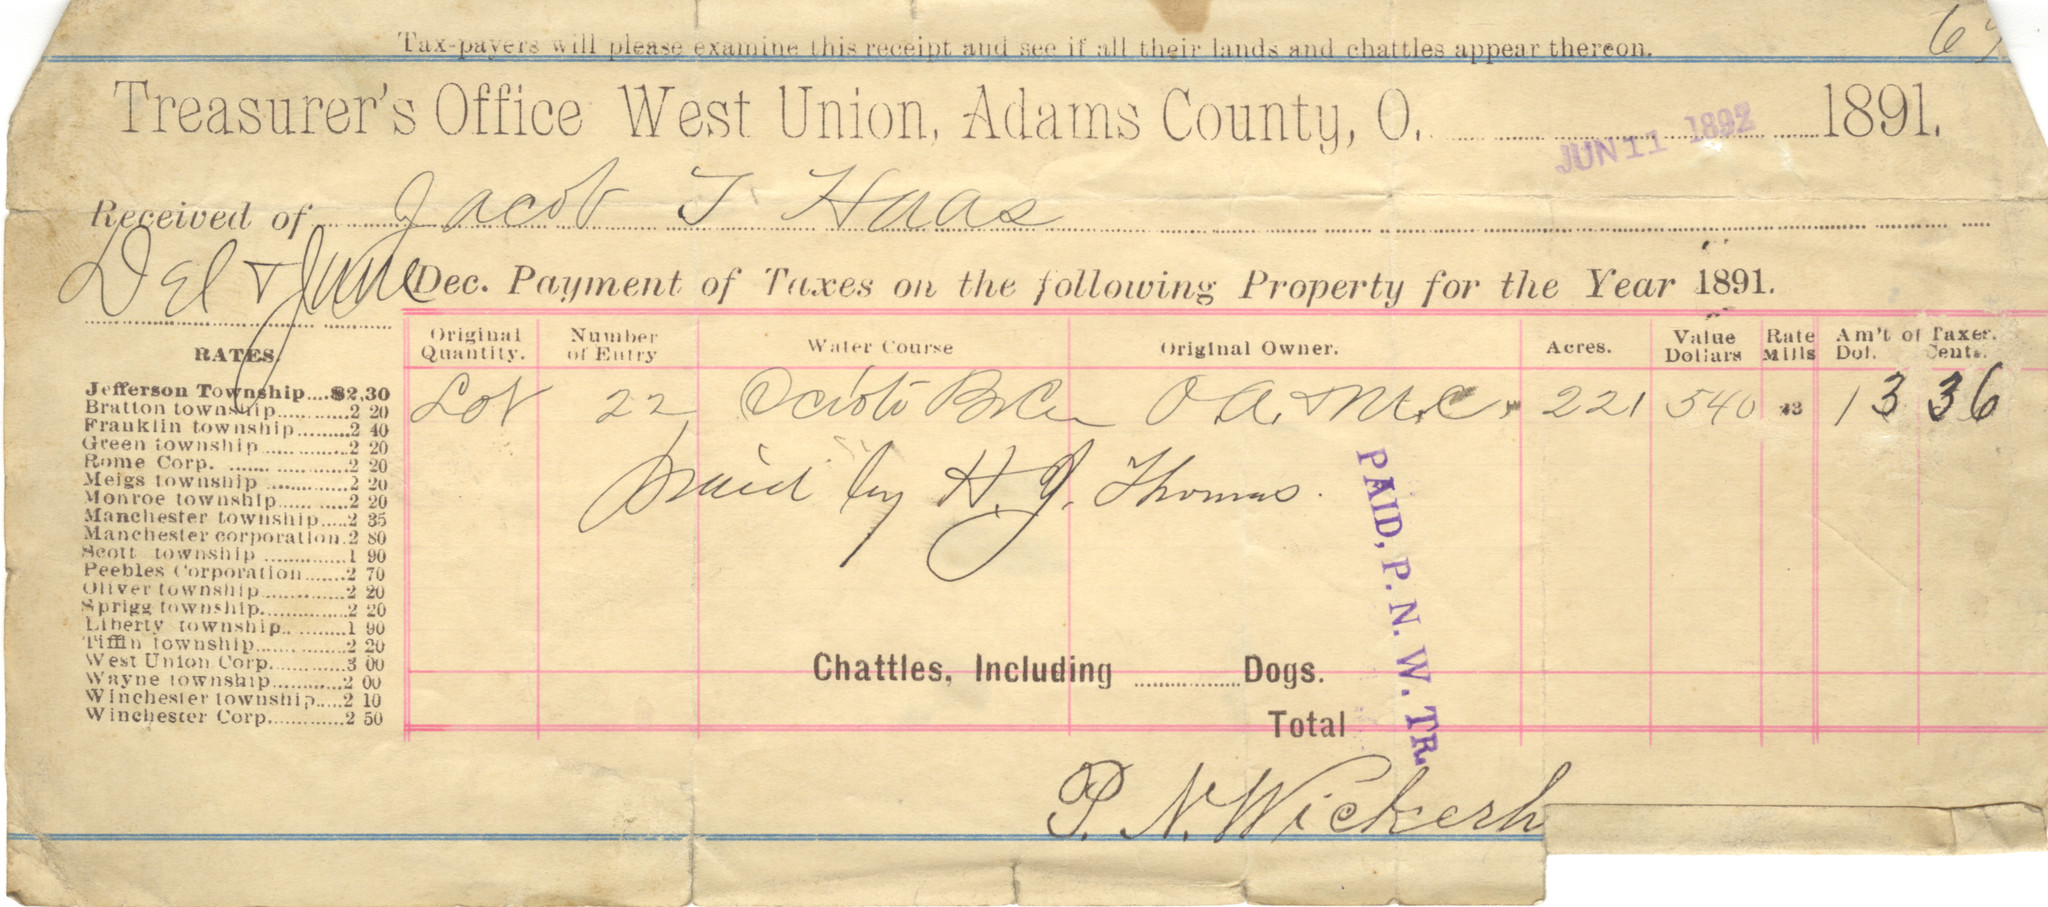 Tax-payers will please examine this receipt and see if all their lands and chattles appear thereon.
Treasurer's Office West Union, Adams County, O. JUN 11 1892 1891.
Received of Jacob T Haas
Del & June Dec. Payment of Taxes on the following Property for the Year 1891.
RATES.
Jefferson Township....$2.30
Bratton township..........2 20
Franklin township........2 40
Green township............2 20
Rome Corp. ..................2 20
Meigs township ............2 20
Monroe township..........2 20
Manchester township....2 35
Manchester corporation.2 80
Scott township ............1 90
Peebles Corporation......2 70
Oliver township............2 20
Sprigg township............2 20
Liberty township..........1 90
Tiffin township............2 20
West Union Corp..........3 00
Wayne township..........2 00
Winchester township....2 10
Winchester Corp..........2 50
Original Quantity. Number of Entry Water Course Original Owner. Acres. Value Dollars Rate Mills Am't of Taxes. Dol. Cents.
Lot 22 Scioto O. A. & M. C. 221 540 13 36
paid by H. J. Thomas.
PAID, P. N. W. TR.
Chattles, Including ............Dogs.
Total
P. N. Wickerh